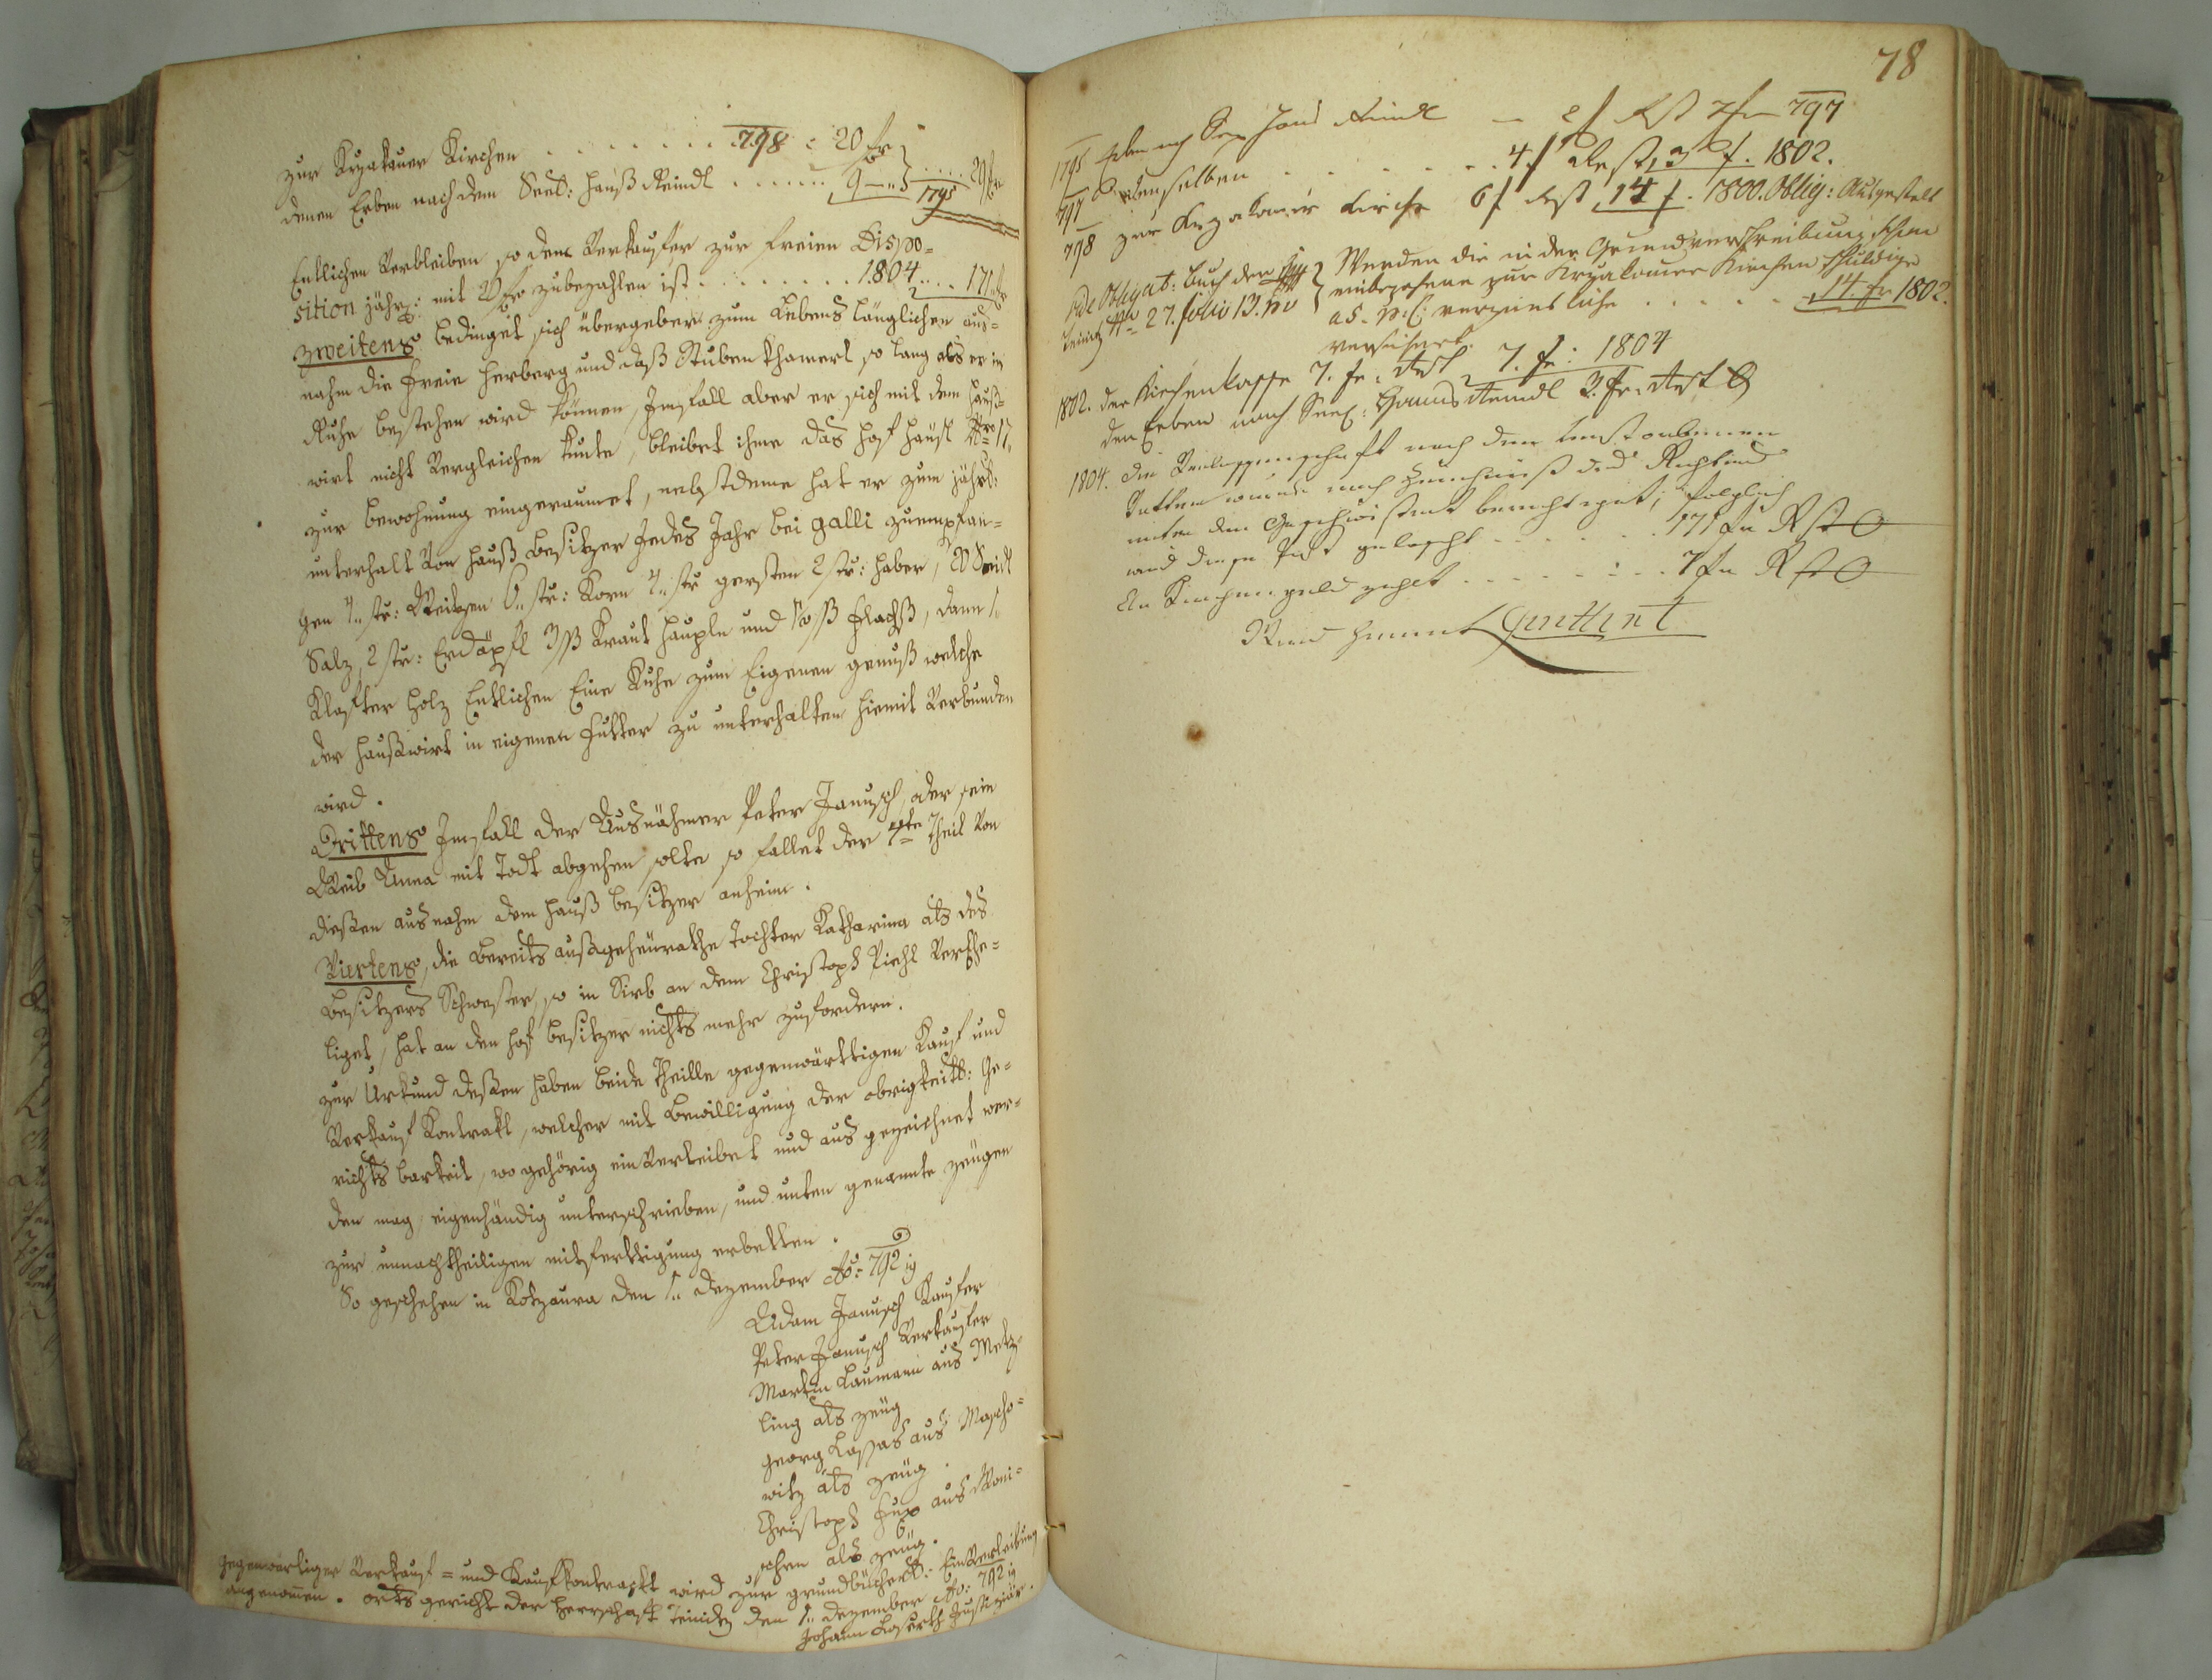 zur Kryakauer Kirchen . . . . . . . . 798 : 20 fr
denen Erben nach dem Seel: Hanß Reindl . . . . . . . 9 — " . . . . . 29 fr
1795
Endlichen Verbleiben so dem Verkaufer zur freien Dispo=
sition jährl: mit 20 fr zubezahlen ist . . . . . . . . 1804 . . . . 171 fr
Zweitens bedinget sich übergeber zum Lebens länglichen aus=
nahm die freie Herberg und daß Stuben Khamerl so lang als er in
Ruhe bestehen wird können, Imfall aber er sich mit dem Hauß=
wirt nicht Vergleichen kunte, bleibet ihme das Hof Häusl Nro 17.
zur bewohnung eingeraumet, nebstdeme hat er zum jährl:
unterhalt Von Hauß besitzer Jedes Jahr bei Galli zuempfan=
gen 4 str: Weitzen 6 str: Korn 4 str gersten 2 str: Haber, 20 Seidl
Salz, 2 str: Erdäpfl 3 ß Kraut Haupln und ß Flachß, dann 1
Klafter Holz Entlichen Eine Kuhe zum Eigenen genuß welche
der Haußwirt in eigenen Futter zu unterhalten hiemit Verbunden
wird.
Drittens Imfall der Ausnähmer Peter Janusch, oder sein
Weib Anna mit Todt abgehen solte so fallet der 4te Theil Von
dießen ausnahm dem Hauß besitzer anheim.
Viertens, die bereits außgeheurathe Tochter Katharina als des
besitzers Schwester, so in Sirb an dem Christoph Piehl Verehe=
liget, hat an den Hof besitzer nichts mehr zufordern.
zur Urkund deßen haben beide Theille gegenwärttigen Kauf und
Verkauf Kontrakt, welcher mit Bewilligung der obrigkeitl: Ge=
richts barkeit, wo gehörig ein Verleibet und aus gezeichnet wer=
den mag, eigenhändig unterschrieben, und unten genannte zeugen
zur unnachtheiligen mitfertigung erbetten.
So geschehen in Kotzaura den 1. Dezember Ao: 792 ig
Adam Janusch Kaufer
Peter Janusch Verkaufer
Martin Baumann aus Metz=
ling als zeüg
Georg Lassas aus Mascho=
witz als zeüg.
Christoph Fux aus Woni=
schen als zeüg.
Gegenwärtiger Verkauf= und Kaufkontrackt wird zur grundbücherl: Ein Verleibung
angenommen. Orts gericht der Herrschaft Teinitz den 1. Dezember Ao: 792 ig
Johann Laserth Justiziär.
78
1795 Erben nach Seel Hanß Reindl — 2 f Rst 7 f — 797
797 denselben . . . . . . . 4 f Rest, 3 f. 1802.
798 zur Kryakauer Kirche 6 f Rst 14 f. 1800. Oblig: Ausgestelt
Vid Obligat: Buch der
Teinitz No 27. folio 13. no
Werden die in der Grundverschreibung schon
einbezohene zur Kryakauer Kirchen schuldige
a 5. p. C: verzinsliche . . . . . . 14. fr 1802.
versichert.
1802. der Kirchenkasse 7. fr. Rest 7. fr: 1804
den Erben nach Seel: Hanns Reindl 3. fr. Rest 0
1804. Die Verlassenschaft nach dem verstorbenen
Vattern wurde nach
unter den Geschwistert berichtiget; folglich
und diese Post gelescht . . . . . . 171 fr Rst 0
An Kirchengeld zahlt . . . . . . . 7 fr Rst 0